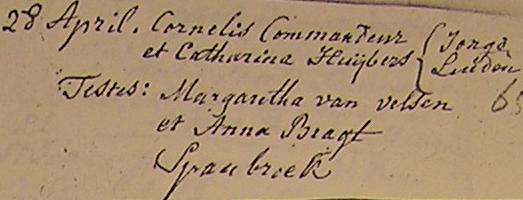 28 April. Cornelis Commandeur { Jonge
et Catharina Huijbers { Luiden
Testes: Margaretha van velsen
et Anna Bragt
Spanbroek